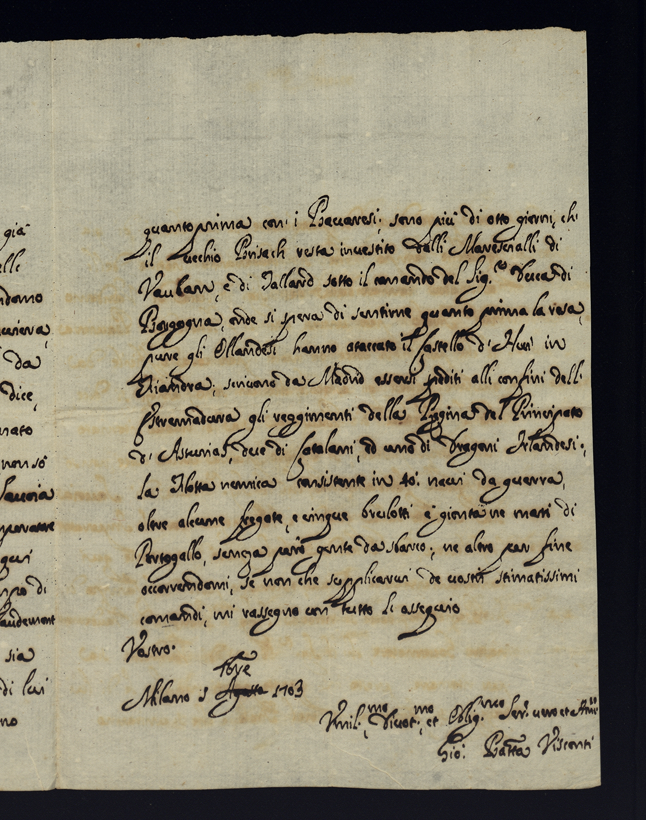 già
elle
ndomo
da
dice,
nato
non sò
Savoia
qui
npo di
audemont
sia
di lui
no
quanto prima con i Bavaresi; sono più di otto giorni, che
il Vecchio Brisach resta investito dalli Marescialli di
Vauban, e di Tallard sotto il comando del Sig.re Duca di
Borgogna, onde si spera di sentirne quanto prima la resa,
pure gli Ollandesi hanno attaccato il Castello d'Hui in
Fiandra; scrivono da Madrid essersi spediti alli confini dell'
Estremadura gli reggimenti della Regina del Principato
d'Asturias, due di Catalani, ed uno di Dragoni Irlandesi;
la Flotta nemica consistente in 40 navi da guerra,
oltre alcune fregate, e cinque brulotti è gionta ne mari di
Portogallo, senza però gente da sbarco; ne altro per fine
occorrendomi, se non che supplicarvi de vostri stimatissimi
comandi, mi rassegno con tutto l'osseguio
Vostro.
7bre
Milano 5 Agosto 1703
Umil.mo Divot.mo et Oblig. Ser. vero et
Gio: Batta Visconti